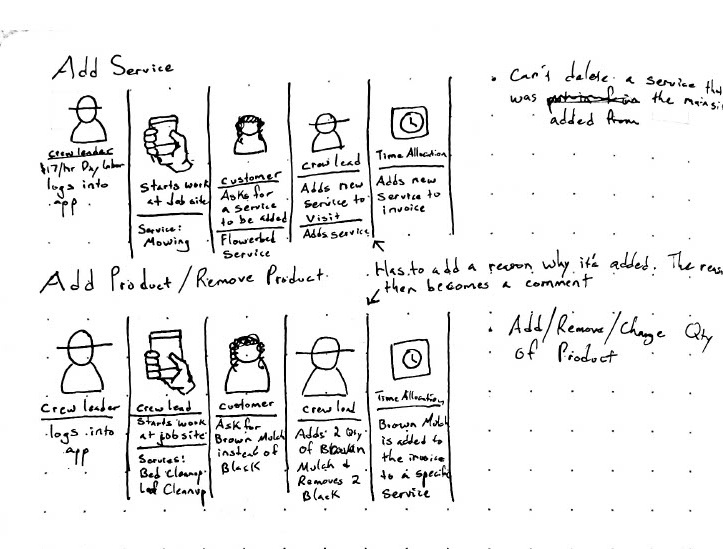 Add Service
Crew leader
$17/hr Day Labor
logs into
app
Starts work
at Job site
Service:
Mowing
Customer
Asks for
a service
to be added
Flowerbed
Service
Crew lead
Adds new
service to
Visit
Adds service
Time Allocation
Adds new
Service to
invoice
• Can't delete a service that
was the
added from
Has to add a reason why it's added. The
then becomes a comment
Add Product/Remove Product
Crew leader
logs into
app
Crew lead
Starts work
at job site
Services:
Bed Cleanup
Leaf Cleanup
Customer
Ask for
Brown Mulch
instead of
Black
Crew lead
Adds 2 Qty
of Brown
Mulch &
Removes 2
Black
Time Allocation
Brown Mulch
is added to
the invoice
to a specific
Service
• Add/Remove/Change Qty
of Product